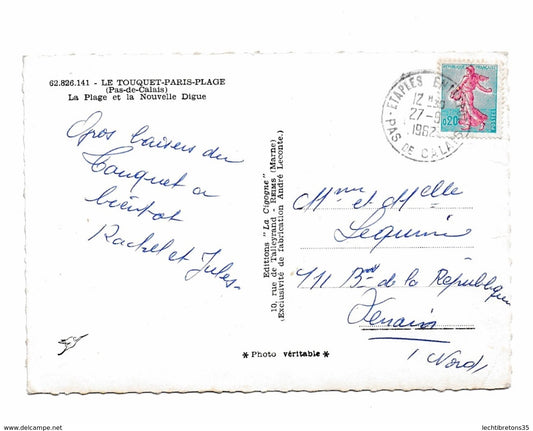 62.826.141 - LE TOUQUET-PARIS-PLAGE
(Pas-de-Calais)
La Plage et la Nouvelle Digue
Gros baisers du
Touquet a
bientot
Rachel et Jules-
Editions "La Cigogne"
10, rue de Talleyrand - REIMS (Marne)
(Exclusivité de fabrication André Leconte.)
* Photo véritable *
ETAPLES
12 H30
27-9
1962
PAS DE CALAIS
REPUBLIQUE FRANÇAISE
0,20
POSTES
Mme et Melle
Lequimi
111 Bard de la République
Denain
(Nord)
www.delcampe.net
lechtibretons35